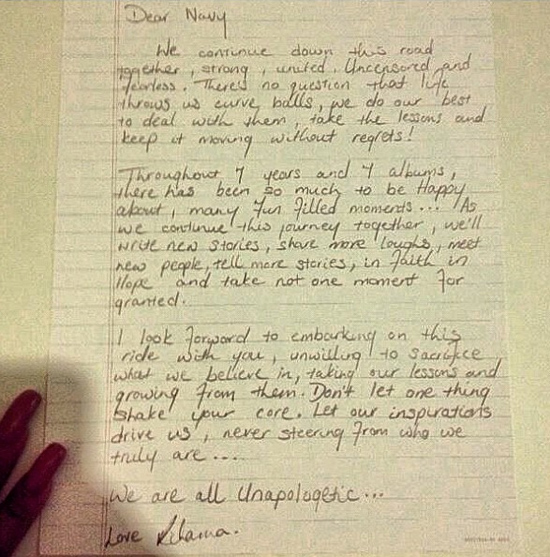 Dear Navy
We continue down this road
together, strong, united, Uncensored and
fearless. There's no question that life
throws us curve balls, we do our best
to deal with them, take the lessons and
keep it moving without regrets!
Throughout 7 years and 7 albums,
there has been so much to be Happy
about, many fun filled moments... As
we continue this journey together, we'll
write new stories, share more laughs, meet
new people, tell more stories, in faith in
Hope and take not one moment for
granted.
I look forward to embarking on this
ride with you, unwilling to sacrifice
what we believe in, taking our lessons and
growing from them. Don't let one thing
shake your core. Let our inspirations
drive us, never steering from who we
truly are....
We are all Unapologetic...
Love Rihanna.